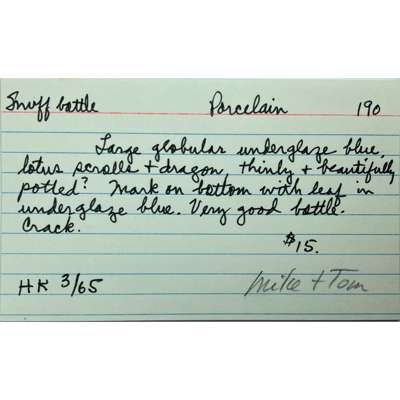 Snuff bottle Porcelain 190
Large globular underglaze blue,
lotus scrolls + dragon, thinly + beautifully
potted? Mark on bottom with leaf in
underglaze blue. Very good bottle.
Crack.
$15.
HK 3/65 Mike + Tom